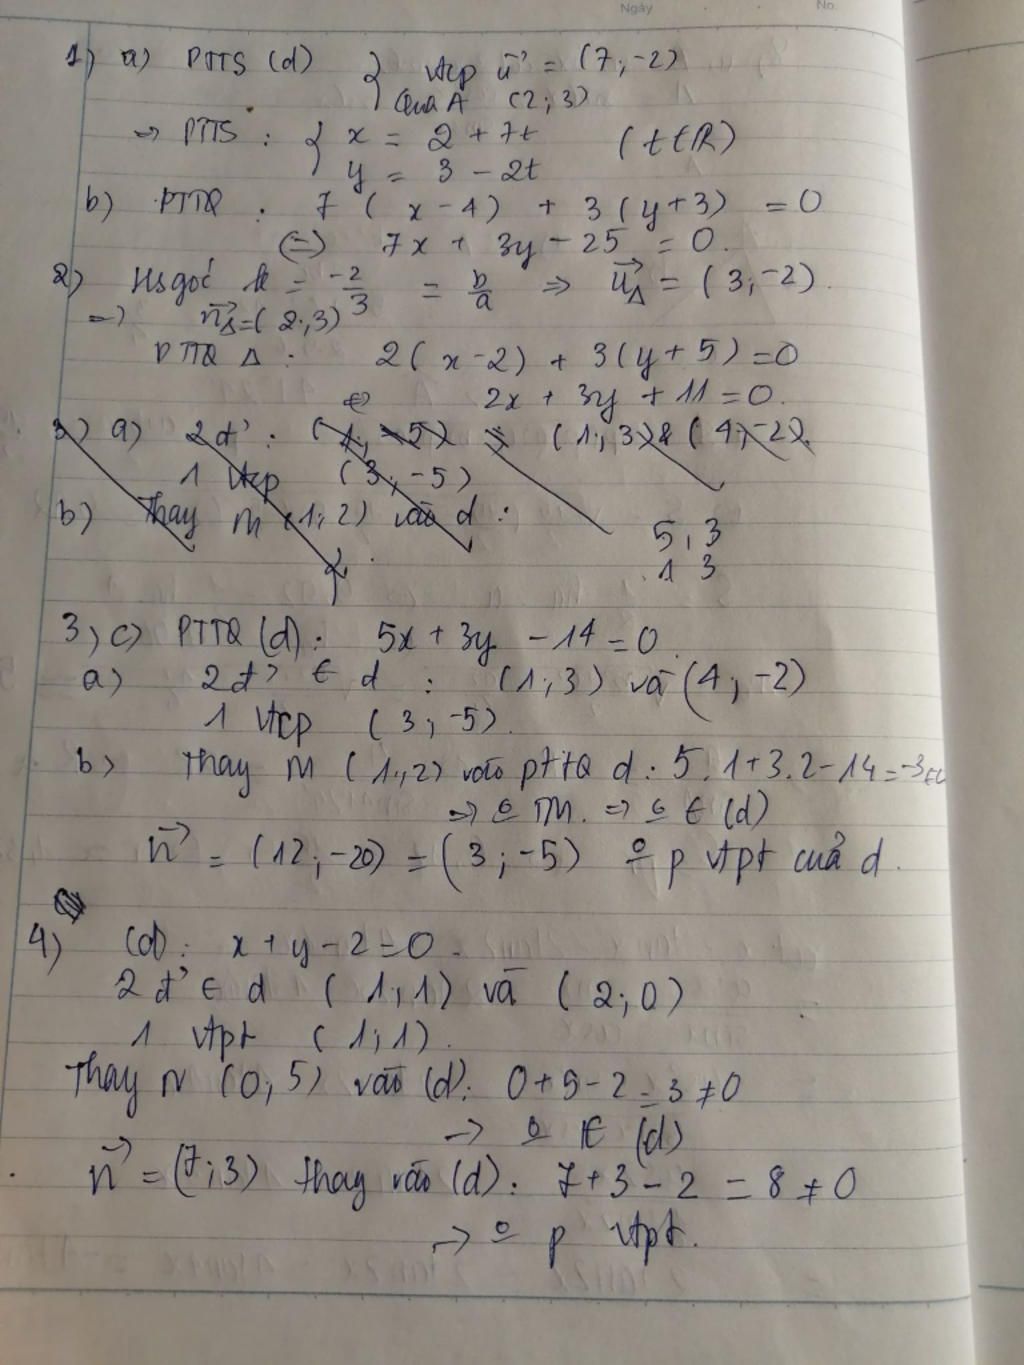 Ngày No.
1) a) PTTS (d) { vtcp u⃗ = (7; -2)
Qua A (2; 3)
=> PTTS : { x = 2 + 7t (t∈R)
y = 3 - 2t
b) PTTQ : 7 ( x - 4) + 3 (y + 3) = 0
(=) 7x + 3y - 25 = 0.
2) Hsgóc k = -2/3 = b/a => u⃗Δ = (3; -2).
=> n⃗Δ = (2; 3)
PTTQ Δ : 2( x - 2) + 3(y + 5) = 0
2x + 3y + 11 = 0.
3) a) 2đ' : (1; -5) (1; 3) & (4; -2).
1 vtcp (3; -5)
b) Thay M (1; 2) vào d :
5, 3
1 3
3) c) PTTQ (d) : 5x + 3y - 14 = 0
a) 2đ' ∈ d : (1; 3) và (4; -2)
1 vtcp (3; -5).
b) Thay M (1; 2) vào pttQ d : 5.1 + 3.2 - 14 = -3
=> TM. => ∈ (d)
n⃗ = (12; -20) = (3; -5) p vtpt của d.
4) (d) : x + y - 2 = 0.
2đ' ∈ d (1; 1) và (2; 0)
1 vtpt (1; 1).
Thay N (0; 5) vào (d) : 0 + 5 - 2 = 3 ≠ 0
-> ∈ (d)
n⃗ = (7; 3) thay vào (d) : 7 + 3 - 2 = 8 ≠ 0
-> p vtpt.